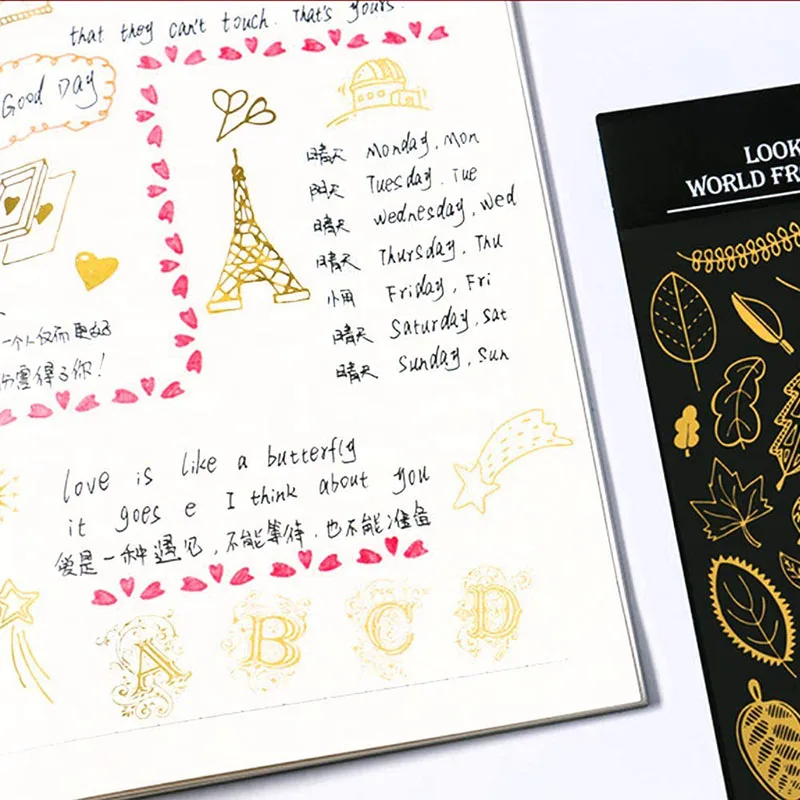 that they can't touch. That's yours.
Good DAY
晴天 Monday, Mon
阴天 Tuesday, Tue
晴天 wednesday, Wed
晴天 Thursday, Thu
小雨 Friday, Fri
晴天 Saturday, Sat
晴天 Sunday, Sun
一个人
值得了你!
love is like a butterfly
it goes e I think about you
爱是一种遇见,不能等待,也不能准备
A B C D
LOOK
WORLD FR